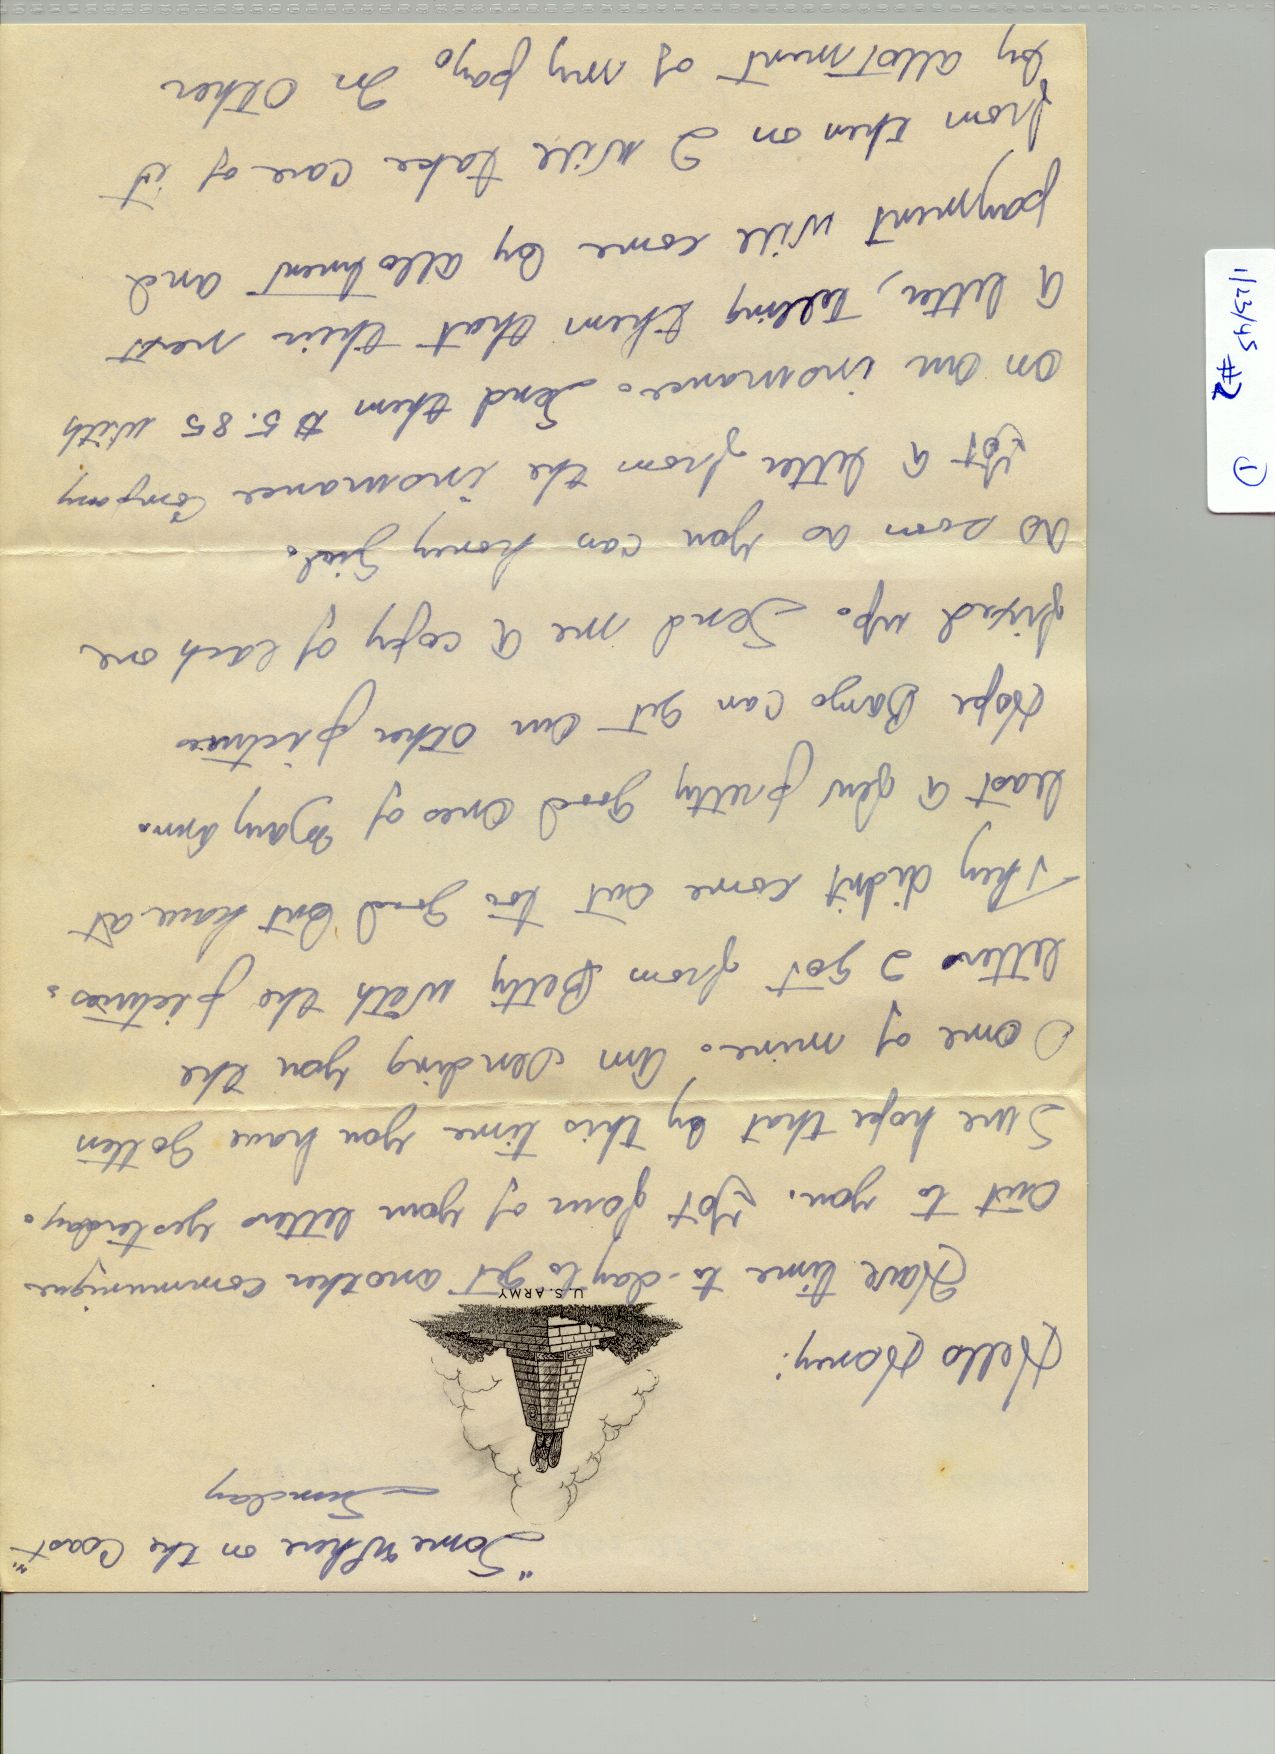 "Somewhere on the Coast".
Sunday
U.S. ARMY
Hello Honey:
Have time to-day to get another communique
out to you. Got four of your letters yesterday.
Sure hope that by this time you have gotten
some of mine. Am sending you the
letters I got from Betty with the pictures.
They didn't come out too good but have at
least a few pretty good ones of Mary Ann.
Hope Banjo can get our other pictures
fixed up. Send me a copy of each one
as soon as you can honey girl.
Got a letter from the insurance company
on our insurance. Send them $5.85 with
a letter, telling them that their next
payment will come by allotment and
from then on I will take care of it
by allotment of my pay. In other
1/23/45 #2
1